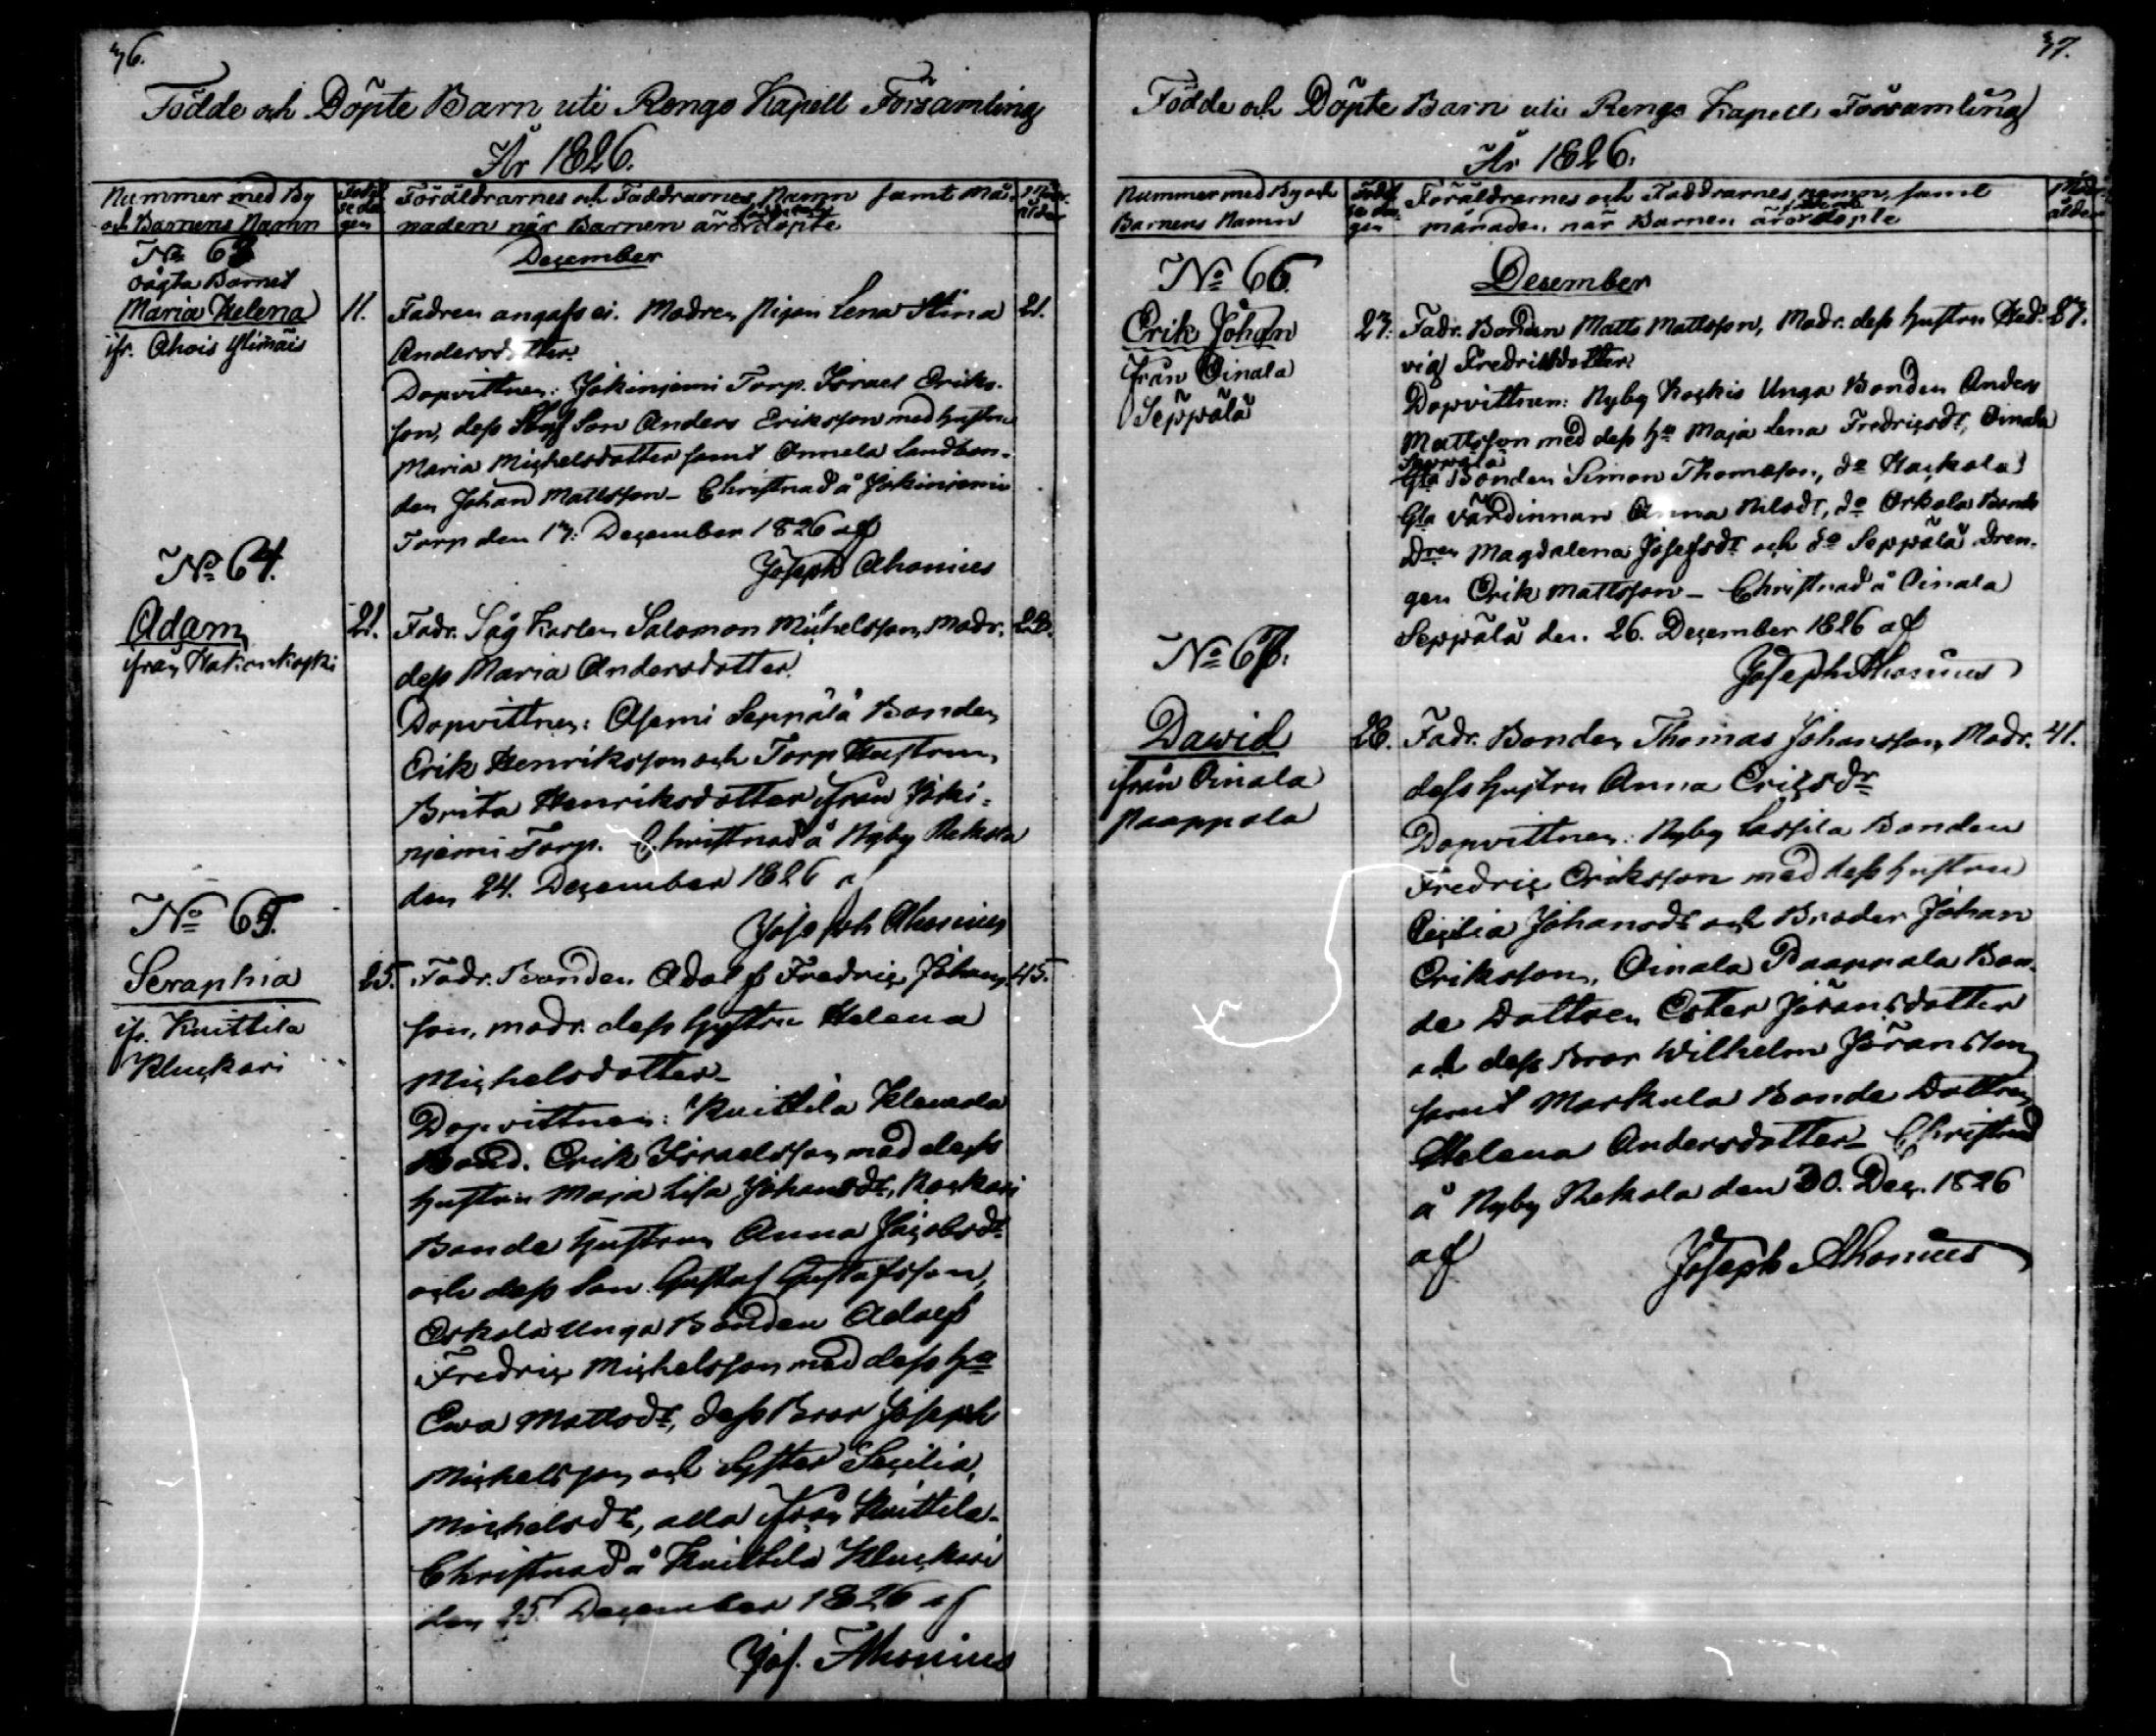 36.
Födde och Döpte Barn uti Rengo Kapell Församling
År 1826.
Nummer med By
och Barnens Namn
Födel
se da
gen
Föräldrarnes och Faddrarnes Namn samt Må-
naden när Barnen äro döpte
Modr.
ålder
December
No 63
oägta Barnet
Maria Helena
ifr. Ahois
11.
Fadren angafs ei. Modren pigan Lena Stina
21.
Andersdotter.
Dopvittnen: Jokiniemi Torp. Israel Eriks-
son, dess Son Anders Eriksson med hustru
Maria Michelsdotter samt Annela Landbon-
den Johan Mattsson – Christnad å Jokiniemi
Torp den 17. December 1826 af
Joseph Ahonius
No 64.
Adam
från Hakonkoski
21.
Fadr. Såg Karlen Salomon Michelsson, Modr.
28.
dess Maria Andersdotter.
Dopvittnen: Asemi Seppälä Bonden
Erik Henriksson och Torp Hustrun
Brita Henriksdotter från Joki-
niemi Torp. Christnad å Nyby Rekola
den 24. December 1826 af
Joseph Ahonius
No 65.
Seraphia
ifr. Kuittila
Kluckari
25.
Fadr. Bonden Adolf Fredric Johans-
45.
son, modr. dess hustru Helena
Michelsdotter –
Dopvittnen: Kuittila Klemola
Bond. Erik Israelsson med dess
hustru Maja Lisa Johansdr,
Bonde hustrun Anna Jacobsdr
och dess Son Gustaf Gustafsson,
Orkola Unga Bonden Adolf
Fredric Michelsson med dess ha
Ewa Mattsdr, dess Bror Joseph
Michelsson och Syster Secilia
Michelsdr, alla från Kuittila –
Christnad å Kuittila Kluckari
den 25. December 1826 af
Jos. Ahonius
37.
Födde och Döpte Barn uti Rengo Kapell Församling
År 1826.
Nummer med By och
Barnens Namn
Födel
se da-
gen
Föräldrarnes och Faddrarnes namn, samt
månaden, när Barnen äro döpte
Modr.
ålder
December
No 66.
Erik Johan
från Oinala
Seppälä
23.
Fadr. Bonden Matts Mattsson, Modr. dess hustru Hed-
37.
vig Fredriksdotter.
Dopvittnen: Nyby Unga Bonden Anders
Mattsson med dess ha Maja Lena Fredricsdr, Oinala
Seppälä
Gla Bonden Simon Thomasson, do
Gla Värdinnan Anna Nilsdr, do Orkola Bonde
Magdalena Josefsdr och do Seppälä Dren-
gen Erik Mattsson – Christnad å Oinala
Seppälä den 26. December 1826 af
Joseph Ahonius
No 67.
Dawid
från Oinala
Paappala
28.
Fadr. Bonden Thomas Johansson, Modr.
41.
dess hustru Anna Ericsdr
Dopvittnen: Nyby Lassila Bonden
Fredric Eriksson med dess hustru
Cicilia Johansdr och Broder Johan
Eriksson, Oinala Paappala Bon-
de Dottren Ester Jöransdotter
och dess Bror Wilhelm Jöransson
samt Markula Bonde Dottren
Helena Andersdotter – Christnad
å Nyby Rekola den 30. Dec. 1826
af
Joseph Ahonius